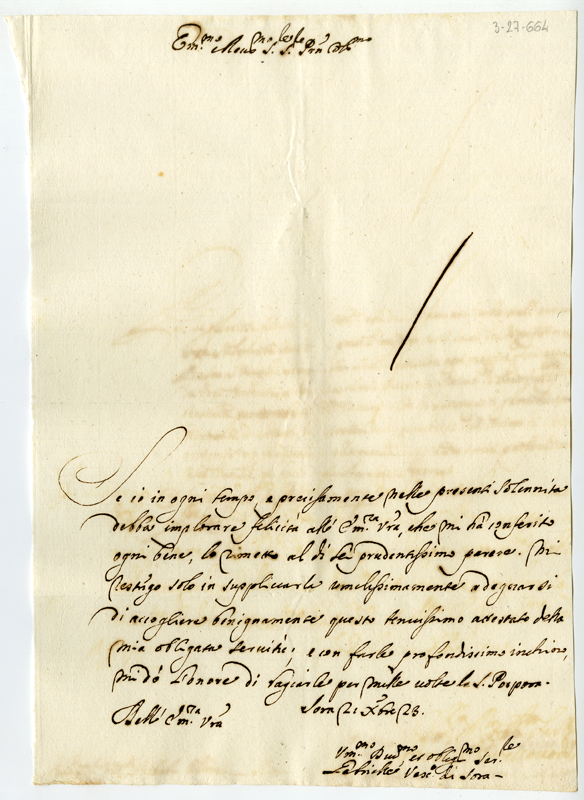 3-27-664
Em.mo e Rev.mo S. S. Prn Col.mo
Se io in ogni tempo, e precisamente nelle presenti Solennità
debba implorare felicità all' Em.za Vrã, che mi hà conferito
ogni bene, lo rimetto al di lei prudentissimo parere. Mi
restrigo solo in supplicarla umilissimamente a degnarsi
di accogliere benignamente questo tenuissimo attestato della
mia obligata servitù; e con farle profondissimo inchino,
mi dò l'onore di baciarle per mille volte la S. Porpora.
Dell' Em.za Vrã Sora 21 Xbre 23.
Vm.mo Du.mo, et oblig.mo Ser.le
Gabriele Vesc.o di Sora